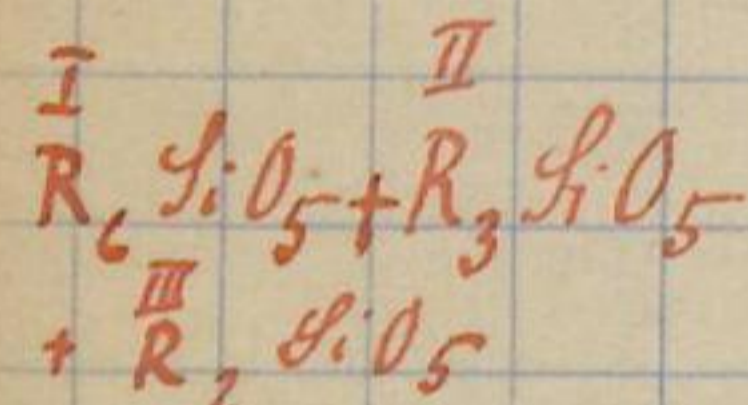 I II
R₆ SiO₅ + R₃ SiO₅
III
+ R₂ SiO₅